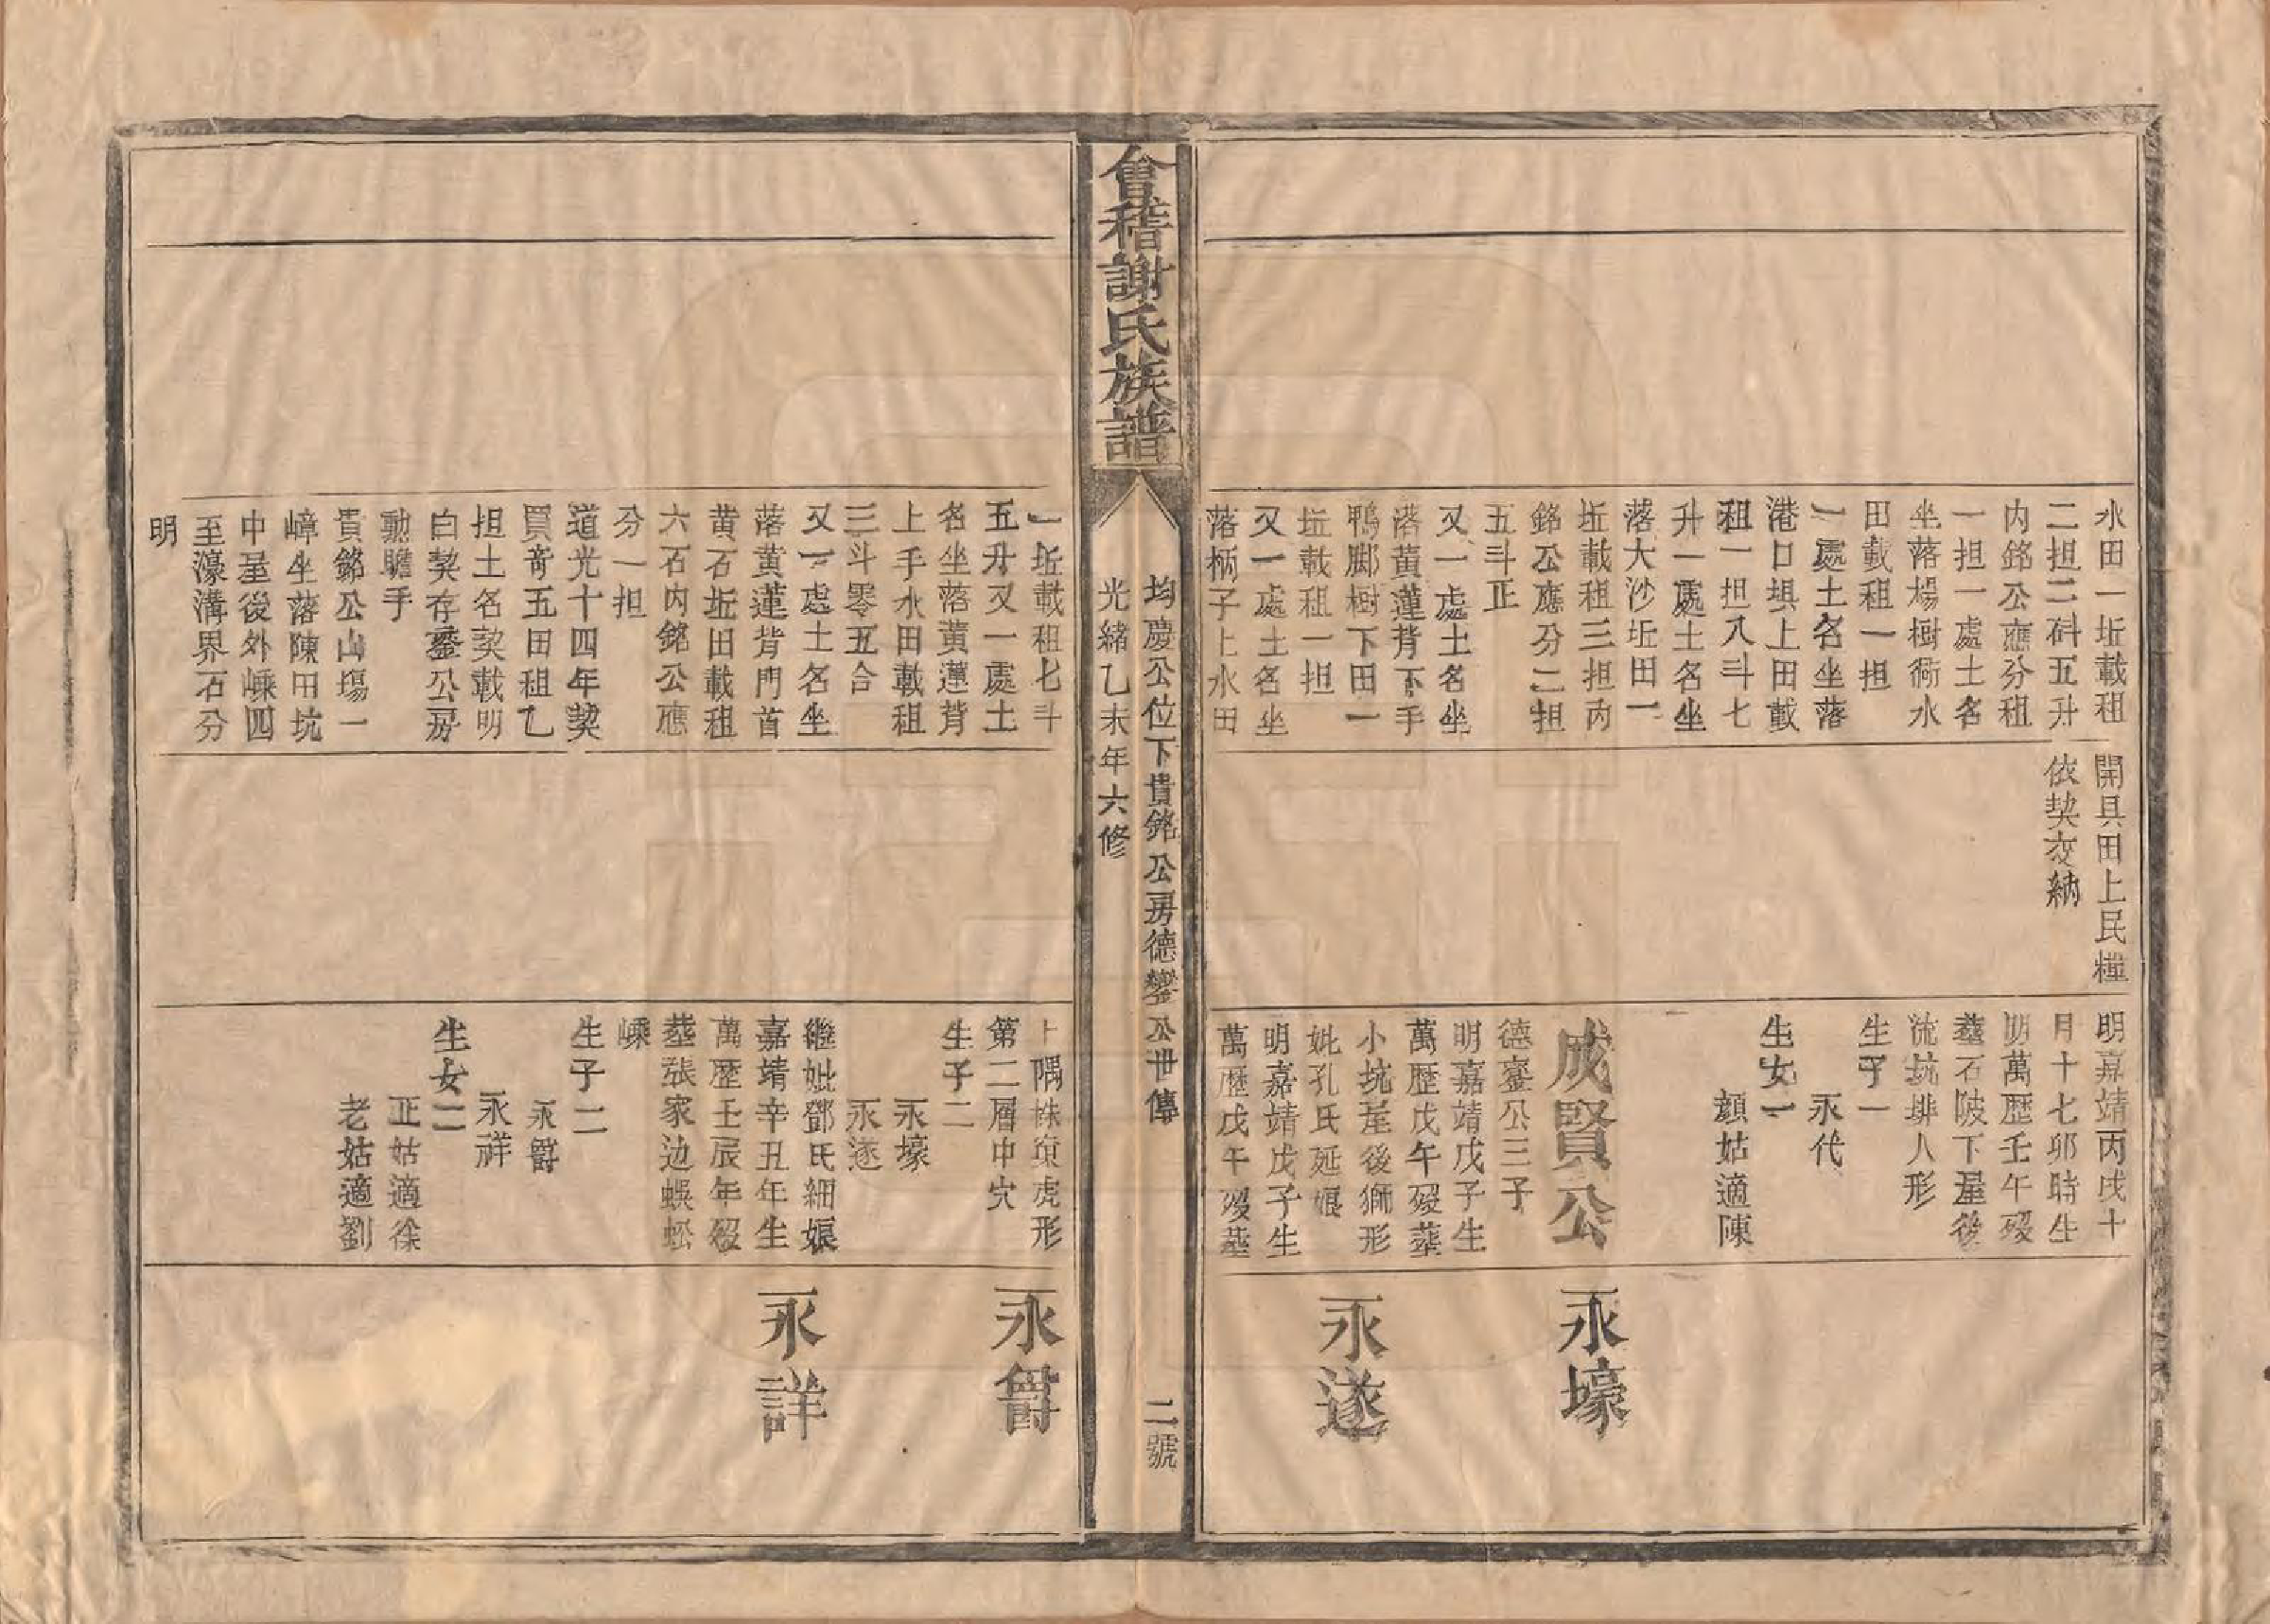 水田一坵載租
二担二斗五升
内銘公應分租
一担一處土名
坐落楊樹衕水
田載租一担
一處土名坐落
港口垻上田載
租一担八斗七
升一處土名坐
落大沙坵田一
坵載租三担丙
銘公應分二担
五斗正
又一處土名坐
落黃蓮背下手
鴨脚樹下田一
坵載租一担
又一處土名坐
落柄子上水田
開具田上民糧
依契交納
明嘉靖丙戌十
月十七卯時生
明萬歷壬午殁
塟石陂下屋後
流坑排人形
生子一
永代
生女一
顔姑適陳
成賢公
德鑾公三子
明嘉靖戊子生
萬歷戊午殁塟
小坑屋後獅形
妣孔氏延娘
明嘉靖戊子生
萬歷戊午殁塟
永壕
永遂
會稽謝氏族譜
均慶公位下貴銘公房德鑾公卋傳
二號
光緒乙未年六修
一坵載租七斗
五升又一處土
名坐落黃蓮背
上手水田載租
三斗零五合
又一處土名坐
落黃蓮背門首
黃石坵田載租
六石内銘公應
分一担
道光十四年契
買奇五田租乙
担土名契載明
白契存鑾公房
勳瞻手
貴銘公山塲一
嶂坐落陳田坑
中屋後外嵊四
至濠溝界石分
明
上隅株 虎形
第二層中穴
生子二
永壕
永遂
繼妣鄧氏細娘
嘉靖辛丑年生
萬歷壬辰年殁
塟張家边蜈蚣
嵊
生子二
永爵
永祥
生女二
正姑適徐
老姑適劉
永爵
永詳